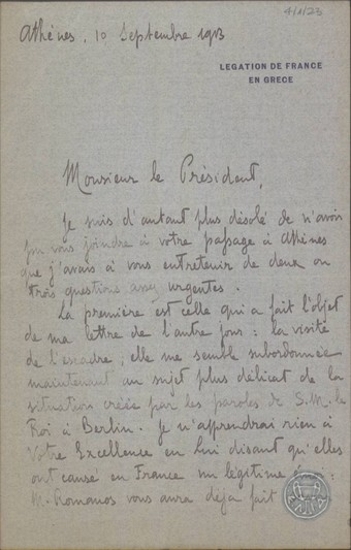 4/1/23
Athènes, 10 Septembre 1913
LEGATION DE FRANCE
EN GRECE
Monsieur le Président,
Je suis d'autant plus désolé de n'avoir
pu vous joindre à votre passage à Athènes
que j'avais à vous entretenir de deux ou
trois questions assez urgentes.
La première est celle qui a fait l'objet
de ma lettre de l'autre jour : la visite
de l'escadre ; elle me semble subordonnée
maintenant au sujet plus délicat de la
situation créée par les paroles de S. M. le
Roi à Berlin. Je n'apprendrai rien à
Votre Excellence en Lui disant qu'elles
ont causé en France un légitime
M. Romanos vous aura déjà fait